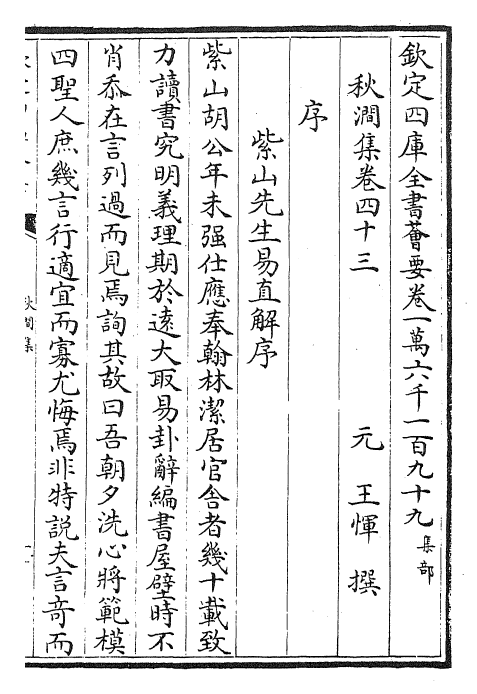 欽定四庫全書薈要卷一萬六千一百九十九集部
秋澗集卷四十三　　元　王惲　撰
序
紫山先生易直解序
紫山胡公年未强仕應奉翰林潔居官舎者幾十載致
力讀書究明義理期於逺大取易卦辭編書屋壁時不
肖忝在言列過而見焉詢其故曰吾朝夕洗心將範模
四聖人庶幾言行適宜而寡尤悔焉非特説夫言竒而
秋澗集